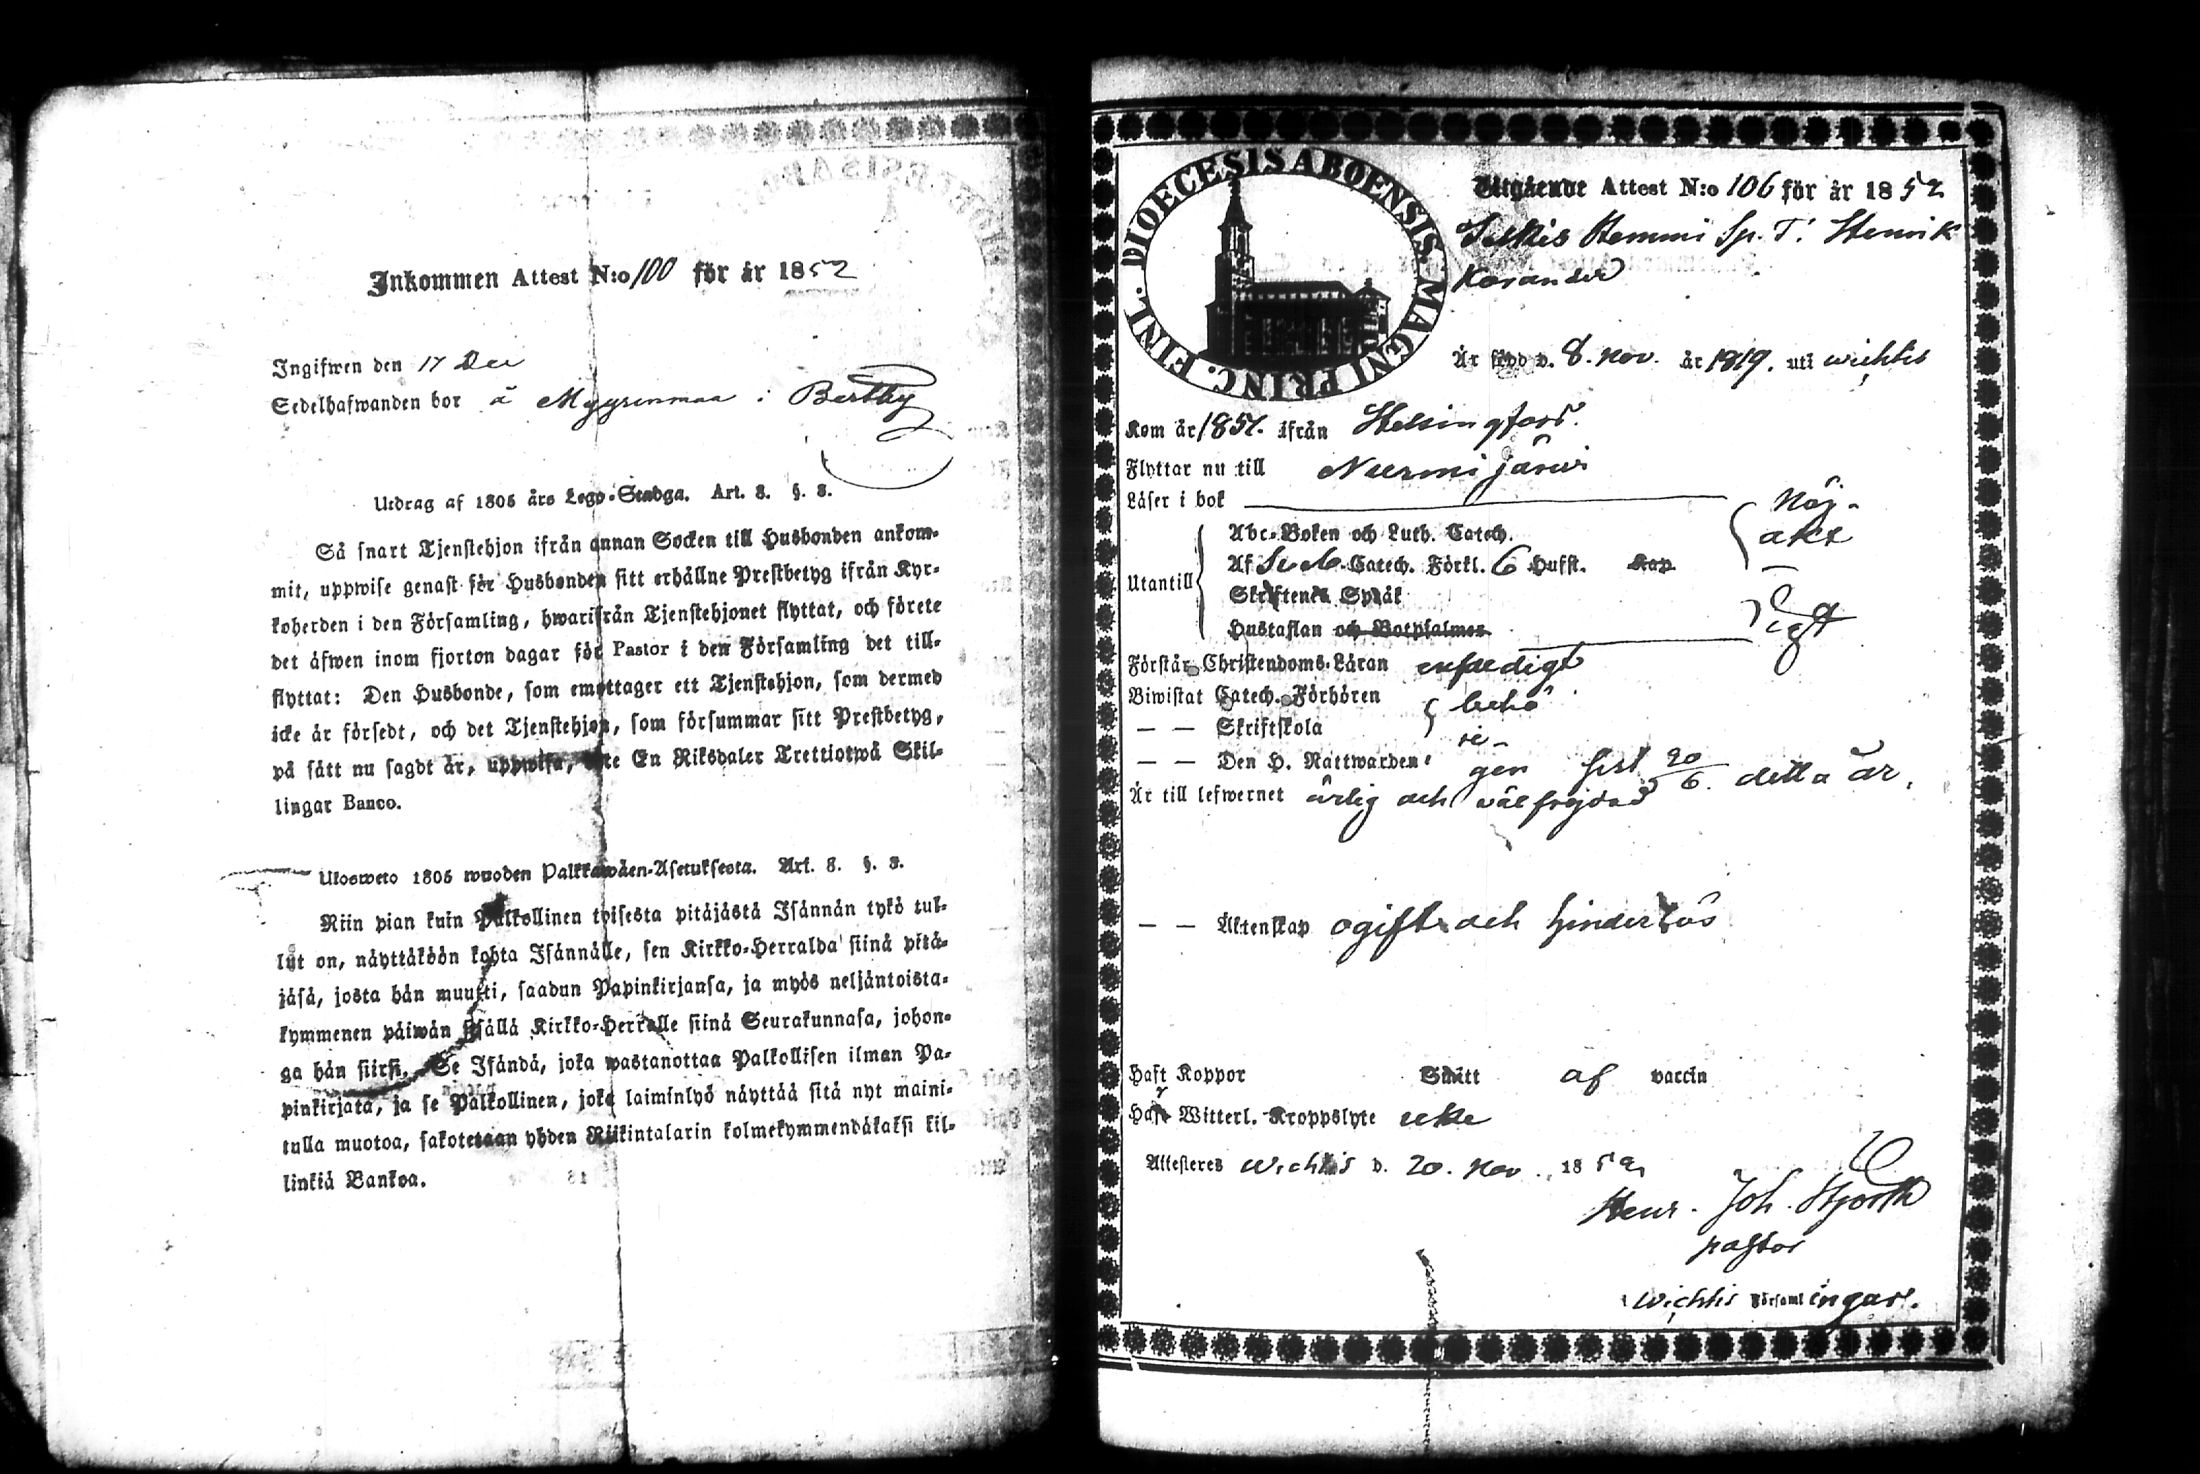 Inkommen Attest N:o 100 för år 1852
Ingifwen den 17 Dec
Sedelhafwanden bor å Myyrinmaa i Perttby
Utdrag af 1805 års Lego-Stadga. Art. 8. §. 8.
Så snart Tjenstehjon ifrån annan Socken till Husbonden ankom-
mit, uppwise genast för Husbonden sitt erhållne Prestbetyg ifrån Kyr-
koherden i den Församling, hwarifrån Tjenstehjonet flyttat, och förete
det äfwen inom fjorton dagar för Pastor i den Församling det till-
flyttat: Den Husbonde, som emottager ett Tjenstehjon, som dermed
icke är försedt, och det Tjenstehjon, som försummar sitt Prestbetyg,
på sätt nu sagdt är, uppwisa, böte En Riksdaler Trettiotwå Skil-
lingar Banco.
Ulosweto 1805 wuoden Palkkawäen-Asetuksesta. Art. 8. §. 8.
Niin pian kuin Palkollinen toisesta pitäjästä Isännän tykö tul-
lut on, näyttäköön kohta Isännälle, sen Kirkko-Herralda siinä pitä-
jäsä, josta hän muutti, saadun Papinkirjansa, ja myös neljäntoista-
kymmenen päiwän sisällä Kirkko-Herralle siinä Seurakunnasa, johon-
ga hän siirsi. Se Isändä, joka wastanottaa Palkollisen ilman Pa-
pinkirjata, ja se Palkollinen, joka laiminlyö näyttää sitä nyt maini-
tulla muotoa, sakotetaan yhden Riikintalarin kolmekymmendäkaksi kil-
linkiä Bankoa.
DIOECESIS ABOENSIS. MAGNI PRINC. FINL.
Utgående Attest N:o 106 för år 1852
Hemmi Henrik
Korander
Är född d. 8. Nov. år 1819. uti Wichtis
Kom år 1851. ifrån Helsingfors.
Flyttar nu till Nurmijärvi
Läser i bok
Nöj-
Abc-Boken och Luth. Catech.
akt
Utantill
Af Sveb. Catech. Förkl. 6 Hufst. Kap
Skriftenes Språk
Hustaflan och Botpsalmer
Förstår Christendoms-Läran enfaldigt
Biwistat Catech. Förhören behö
— — Skriftskola ri-
— — Den H. Nattwarden gen sist 20/6. detta år.
Är till lefwernet ärlig och välfrejdad
— — Äktenskap ogift och hinderlös
Haft Koppor Smitt af vaccin
Har Witterl. Kroppslyte icke
Attesteres Wichtis d. 20. Nov. 1852
Henr. Joh. Hjorth
pastor
i Wichtis Församlingar.